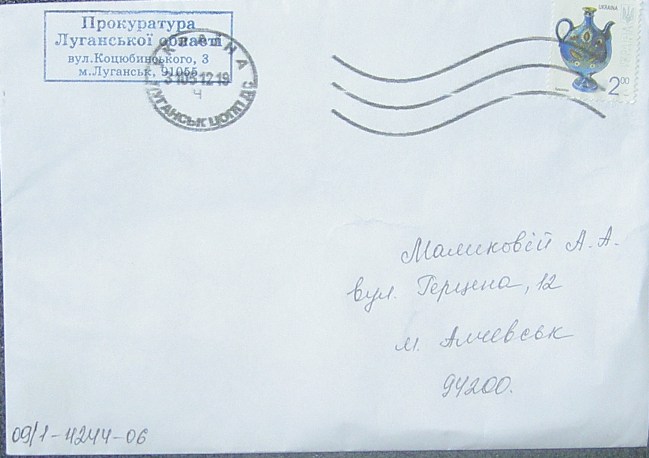 Прокуратура
Луганської області
вул.Коцюбинського, 3
м.Луганськ, 91055
УКРАЇНА
310512 19
Ч
ЛУГАНСЬК ЦОПП ДС
UKRAINA
2.00
Маликовій А.А.
вул. Герцена, 12
м. Алчевськ
94200.
09/1-4244-06